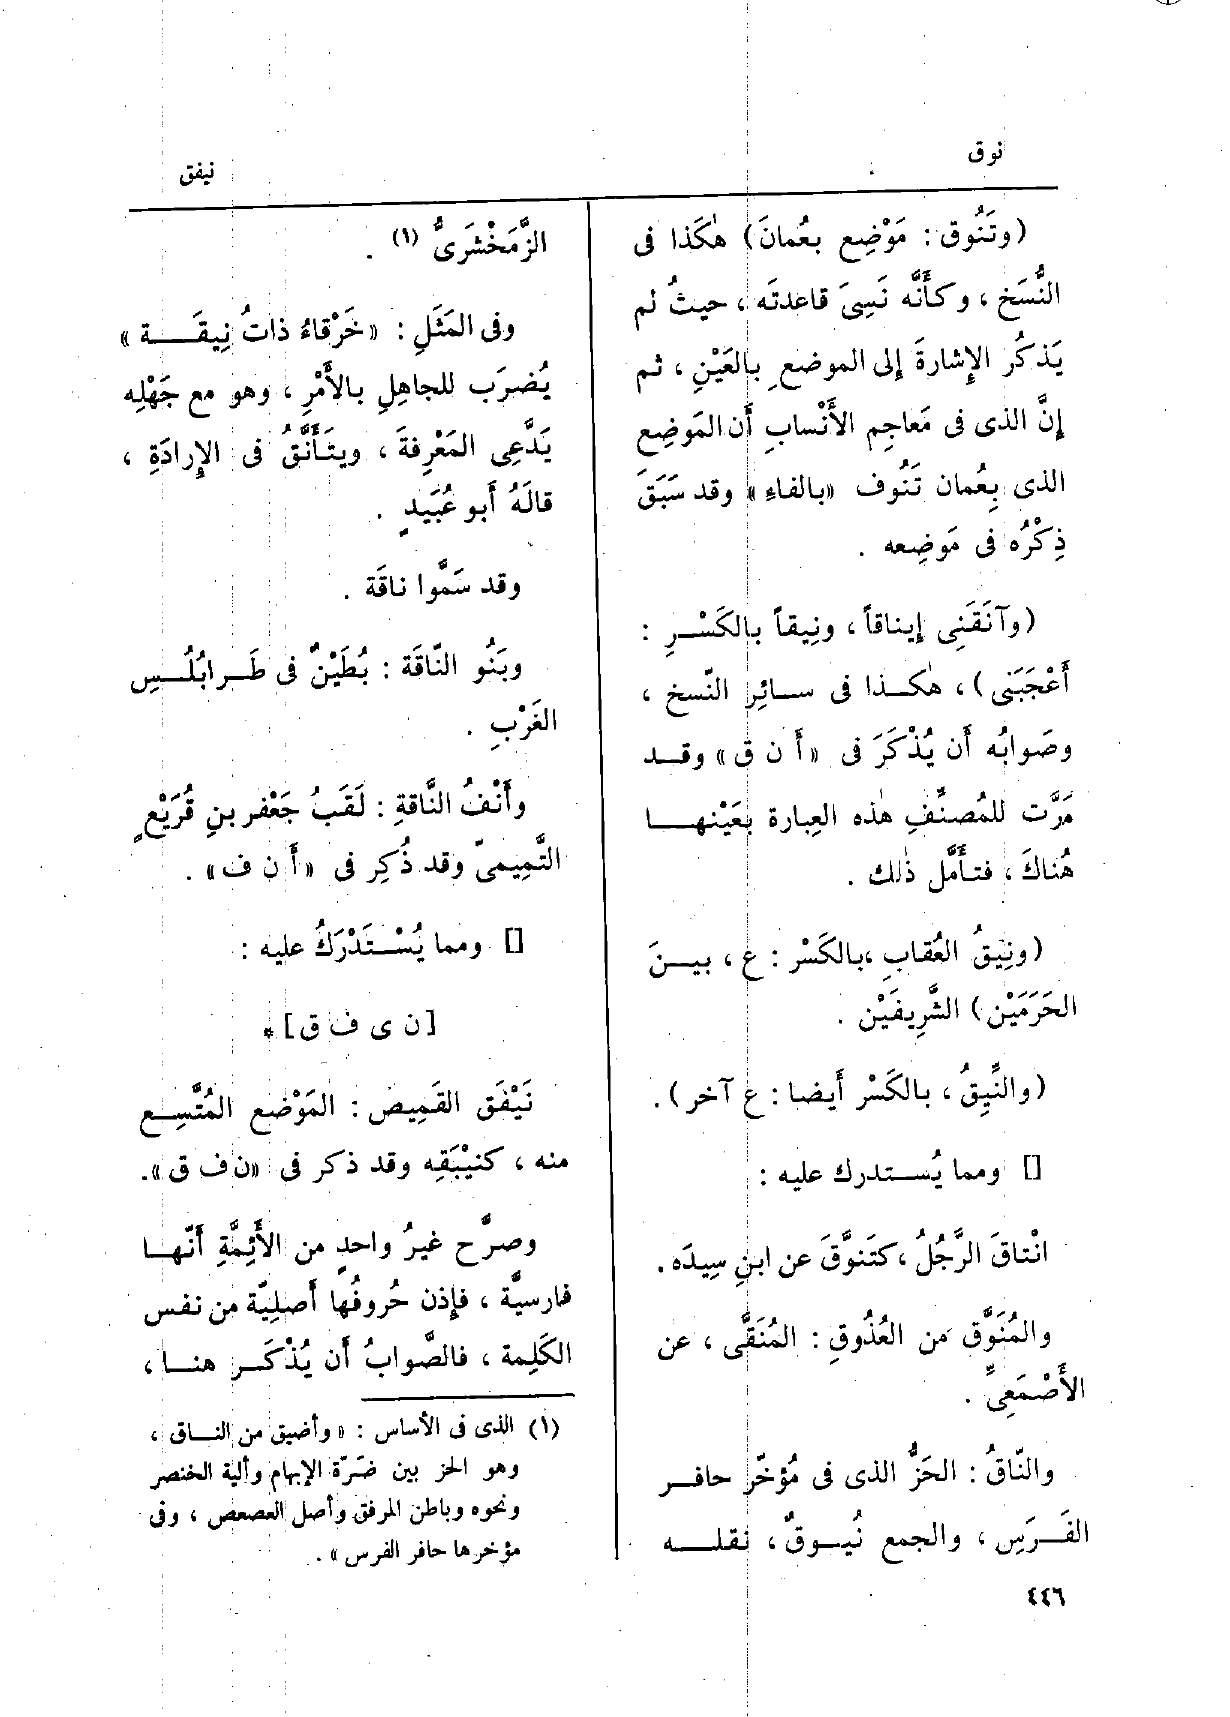 نوق
نيفق
(وتَنُوق : مَوْضِع بعُمانَ) هٰكَذا فى
النُّسَخ ، وكأَنَّه نَسِىَ قاعدتَه ، حيثُ لم
يَذكُر الإِشارةَ إلى الموضعِ بالعَيْنِ ، ثم
إنَّ الذى فى مَعاجِم الأَنْسابِ أَن المَوضِع
الذى بِعُمان تَنُوف «بالفاءِ» وقد سَبَقَ
ذِكْرُه فى مَوضِعه .
(وآنَقَنِى إِيناقاً ، ونِيقاً بالكَسْرِ :
أَعْجَبَنى) ، هٰكذا فى سائِر النّسخ ،
وصَوابُه أَن يُذْكَرَ فى «أَ ن ق» وقد
مَرَّت للمُصنِّفِ هٰذه العِبارة بعَيْنها
هُناكَ ، فتأَمَّل ذٰلك .
(ونِيقُ العُقابِ ،بالكَسْر : ع ، بينَ
الحَرَمَيْن) الشَّرِيفَيْن .
(والنِّيِقُ ، بالكَسْر أَيضا : ع آخر) .
[] ومما يُستدرك عليه :
انْتاقَ الرَّجُلُ ،كتَنوَّقَ عن ابنِ سِيدَه .
والمُنَوَّق مَن العُذُوقِ : المُنَقَّى ، عن
الأَصْمَعِىِّ .
والنّاقُ : الحَزُّ الذى فى مُؤخّر حافر
الفَرَسِ ، والجمع نُيوقٌ ، نقله
٤٤٦
الزَّمَخْشَرِىُّ (١) .
وفى المَثَلِ : «خَرْقاءُ ذاتُ نِيقَة»
يُضرَب للجاهِلِ بالأَمْرِ ، وهو مع جَهْلِه
يَدَّعِى المَعْرِفةَ ، ويتأَنَّقُ فى الإِرادَةِ ،
قالَهُ أَبو عُبَيدٍ .
وقد سَمَّوا ناقَة .
وبَنُو النّاقَة : بُطَيْنٌ فى طَرابُلُسِ
الغَرْبِ .
وأَنْفُ النَّاقةِ : لَقَبُ جَعْفر بنِ قُرَيْعٍ
التَّمِيمىّ وقد ذُكِر فى «أَ ن ف» .
[] ومما يُسْتَدْرَكُ عليه :
[ن ى ف ق] *
نَيْفَق القَمِيص : المَوْضع المُتَّسِع
منه ، كنيْبَقِه وقد ذكر فى «ن ف ق».
وصرَّح غيرُ واحدٍ من الأَئِمَّةِ أَنّها
فارسيَّة ، فإِذن حُروفُها أَصلِيّة من نفس
الكَلِمة ، فالصَّوابُ أَن يُذْكَر هنا ،
(١) الذى فى الأساس : «وأضيق من الناق ،
وهو الحز بين ضَرّة الإبهام وألية الخنصر
ونحوه وباطن المرفق وأصل العصعص ، وفى
مؤخرها حافر الفرس» .